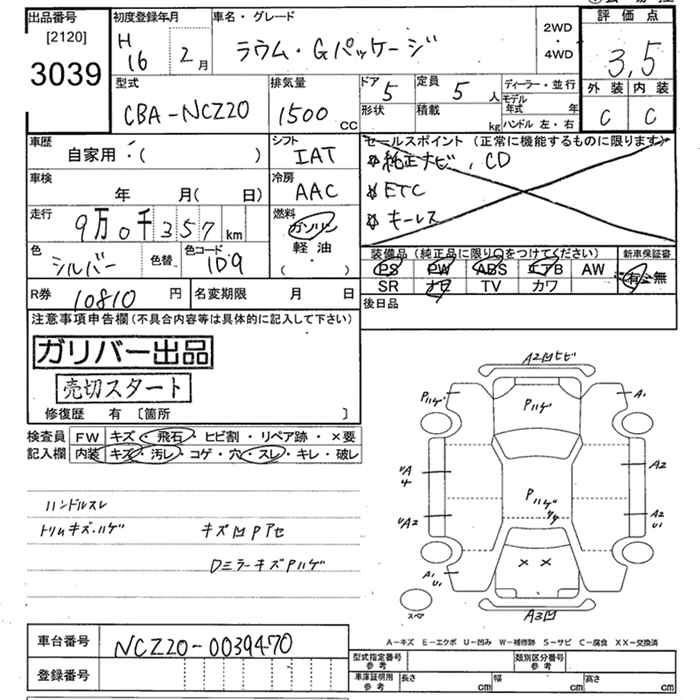 出品番号 初度登録年月 車名・グレード 2WD 評価点
[2120] H 16 2月 ラウム・Gパッケージ ・ 4WD 3,5
3039
型式 排気量 ドア 5 定員 5人 ディーラー・並行 外装 内装
CBA-NCZ20 1500cc 形状 積載 kg モデル年式 年 C C
ハンドル 左・右
車歴 自家用・( ) シフト IAT セールスポイント (正常に機能するものに限ります)
純正ナビ、CD
車検 年 月( 日) 冷房 AAC ETC
走行 9万0千357km 燃料 ガソリン キーレス
軽油
( )
色 シルバー 色替 色コード 1D9 装備品 (純正品に限り○をつけてください) 新車保証書
PS PW ABS エアB AW 有・無
R券 10810円 名変期限 月 日 SR ナビ TV カワ
後日品
注意事項申告欄(不具合内容等は具体的に記入して下さい)
ガリバー出品
売切スタート
修復歴 有 〔箇所 〕
検査員 FW キズ・飛石・ヒビ割・リペア跡・×要
記入欄 内装 キズ・汚レ・コゲ・穴・スレ・キレ・破レ
ハンドルスレ
トリムキズ・ハゲ キズ凹Pアセ
Dミラーキズ Pハゲ
A2凹ヒビ
Pハゲ Pハゲ A1
A2
4 Pハゲ
A2 A2
U1
A1
U1 × ×
スペア A3凹
A-キズ E-エクボ U-凹み W-補修跡 S-サビ C-腐食 XX-交換済
車台番号 NCZ20-0039470
登録番号
型式指定番号 参考 類別区分番号 参考
車庫証明用 参考 長さ cm 幅 cm 高さ cm